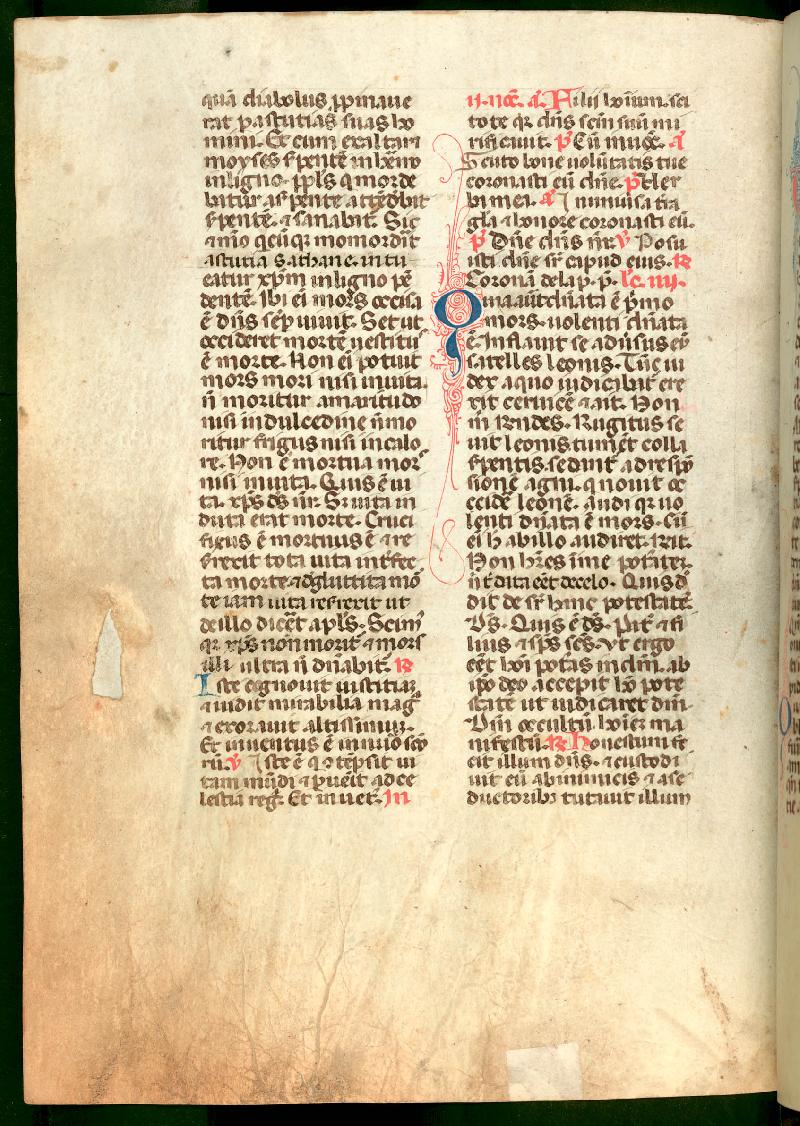 quā diabolus ꝓpinaue
rat ꝑ astutias suas ho
mini. Et cum exaltaꝉ
moyses ẜpentē in hēmo
in ligno. ꝓpl̄s q̄ morde
batur a ẜpente attēdēbit
ẜpentē. ⁊ sanabit̉. Sic
⁊ mō q̄cūqꝫ momordit
astutia sathane. intu
eatur xp̄m in ligno pē
dentē. Ibi eī mors occisa
ē dn̄s sēꝑ uiuit. Set ut
occideret mortē uestitus
ē morte. Non eī potuit
mors mori nisi in uita.
n̄ moritur amaritudo
nisi in dulcedine n̄ mo
ritur frigus nisi in calo
re. Non ē mortua mors
nisi in uita. Quis ē ui
ta. xp̄s ds̄ nr̄. Si uita in
duta erat morte. Cruci
fixus ē mortuus ē ⁊ re
ẜrexit tota uita int̉fec
ta morte ⁊ degluttita mo
te iam uita resrexit ut
de illo dicēt apl̄s. Scim̉
qꝛ xp̄s non morit̉ ⁊ mors
illi ultra n̄ dn̄abit̉. R
Iste cognouit iustitiaꝫ
⁊ uidit mirabilia mag̉
⁊ exorauit altissimuꝫ.
Et inuentus ē in nūo scō
rū. V Iste ē q̉ ꝯtēpsit ui
tam mūdi ⁊ ꝑueīt ad ce
lestia reg̉. Et inuet̉. In
II. noc̄. a. Filii hoīum. sci
tote qꝛ dn̄s scm̄ suū mi
rificauit. p̄ Cū inuoc̄. a
Scuto bone uolūtatis tue
coronasti eū dn̄e. p̄ Uer
ba mea. a In uniuersa t̉ra
gl̄a ⁊ honore coronasti eū.
p̄ Dn̄e dn̄s nr̄. V Posu
isti dn̄e sr̄ caput eius. R
Coronā de lap. p̄. Lc̄. IIII.
Quia aut̄ dn̄ata ē pͥmo
mors. uolenti dn̄ata
ē. Inflauit se aduersus eū
satelles leonis. Tūc iu
dex a quo iudicabit̉ ere
xit ceruicē ⁊ ait. Non
m̄ rn̄des. Rugitus se
uit leonis. tumēt colla
ẜpentis. se dunt̉ ad resp̄
sionē agni. qui nouit oc
cidē leonē. audi qꝛ uo
lenti dn̄ata ē mors. Cū
eī h̄ ab illo audiret. Ait.
Non hēs in me potātē.
n̄ dāta eēt de celo. Quis d̉
dit de sr̄ hanc potestatē.
Vs̄. Quis ē ds̄. Pat̉ ⁊ fi
lius ⁊ sp̄s scs̄. Vt ergo
eēt hoī potas̄ in dnm̄. ab
ip̄o deo accepit hō pote
statē ut iudicaret dm̄.
Vm̄ occultū hoīes ma
nifestū. R Honestum fe
cit illum dn̄s. ⁊ custodi
uit eū ab inimicis ⁊ a se
ductoribꝫ tutauit illum